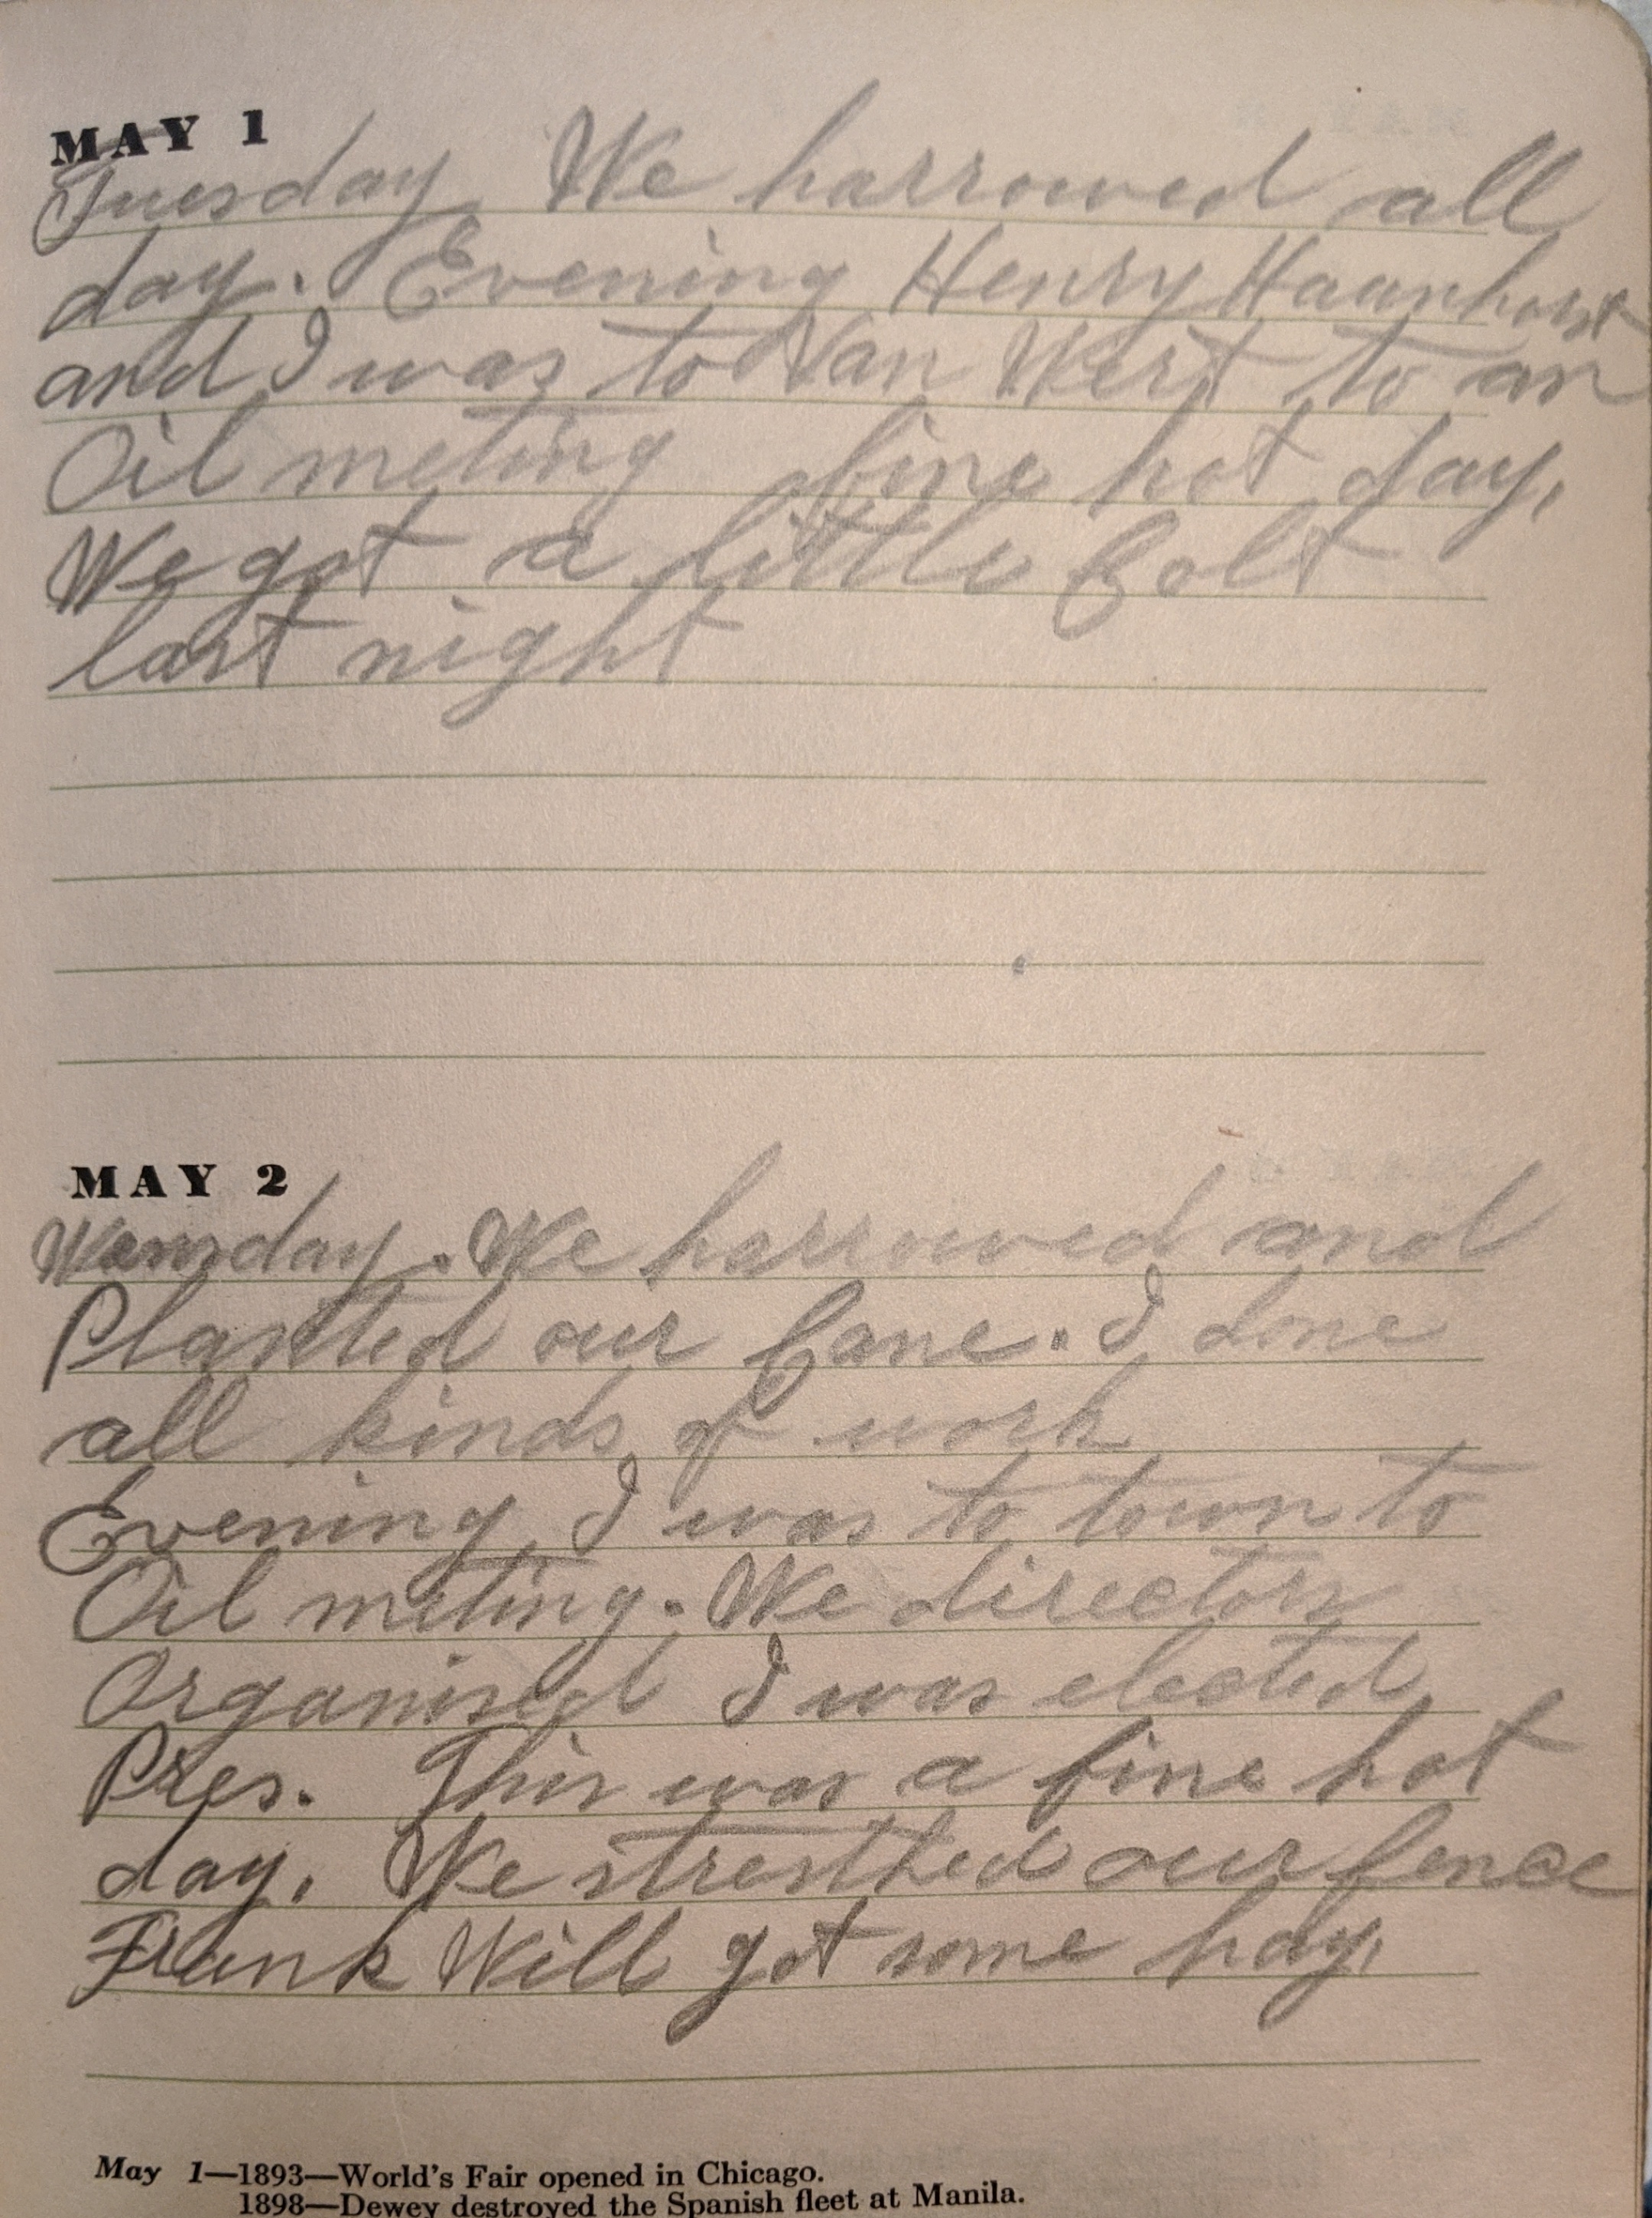 MAY 1
Tuesday. We harrowed all
day. Evening Henry Haunhorst
and I was to Van Wert to an
Oil meting fine hot day,
We got a little Colt
last night
MAY 2
Wensday. We harrowed and
Planted our Cane. I done
all kinds of work
Evening I was to town to
Oil meting. We directors
Organised I was elected
Pres. This was a fine hot
day. We stresthed our fence
Frank Will got some hay,
May 1—1893—World's Fair opened in Chicago.
1898—Dewey destroyed the Spanish fleet at Manila.